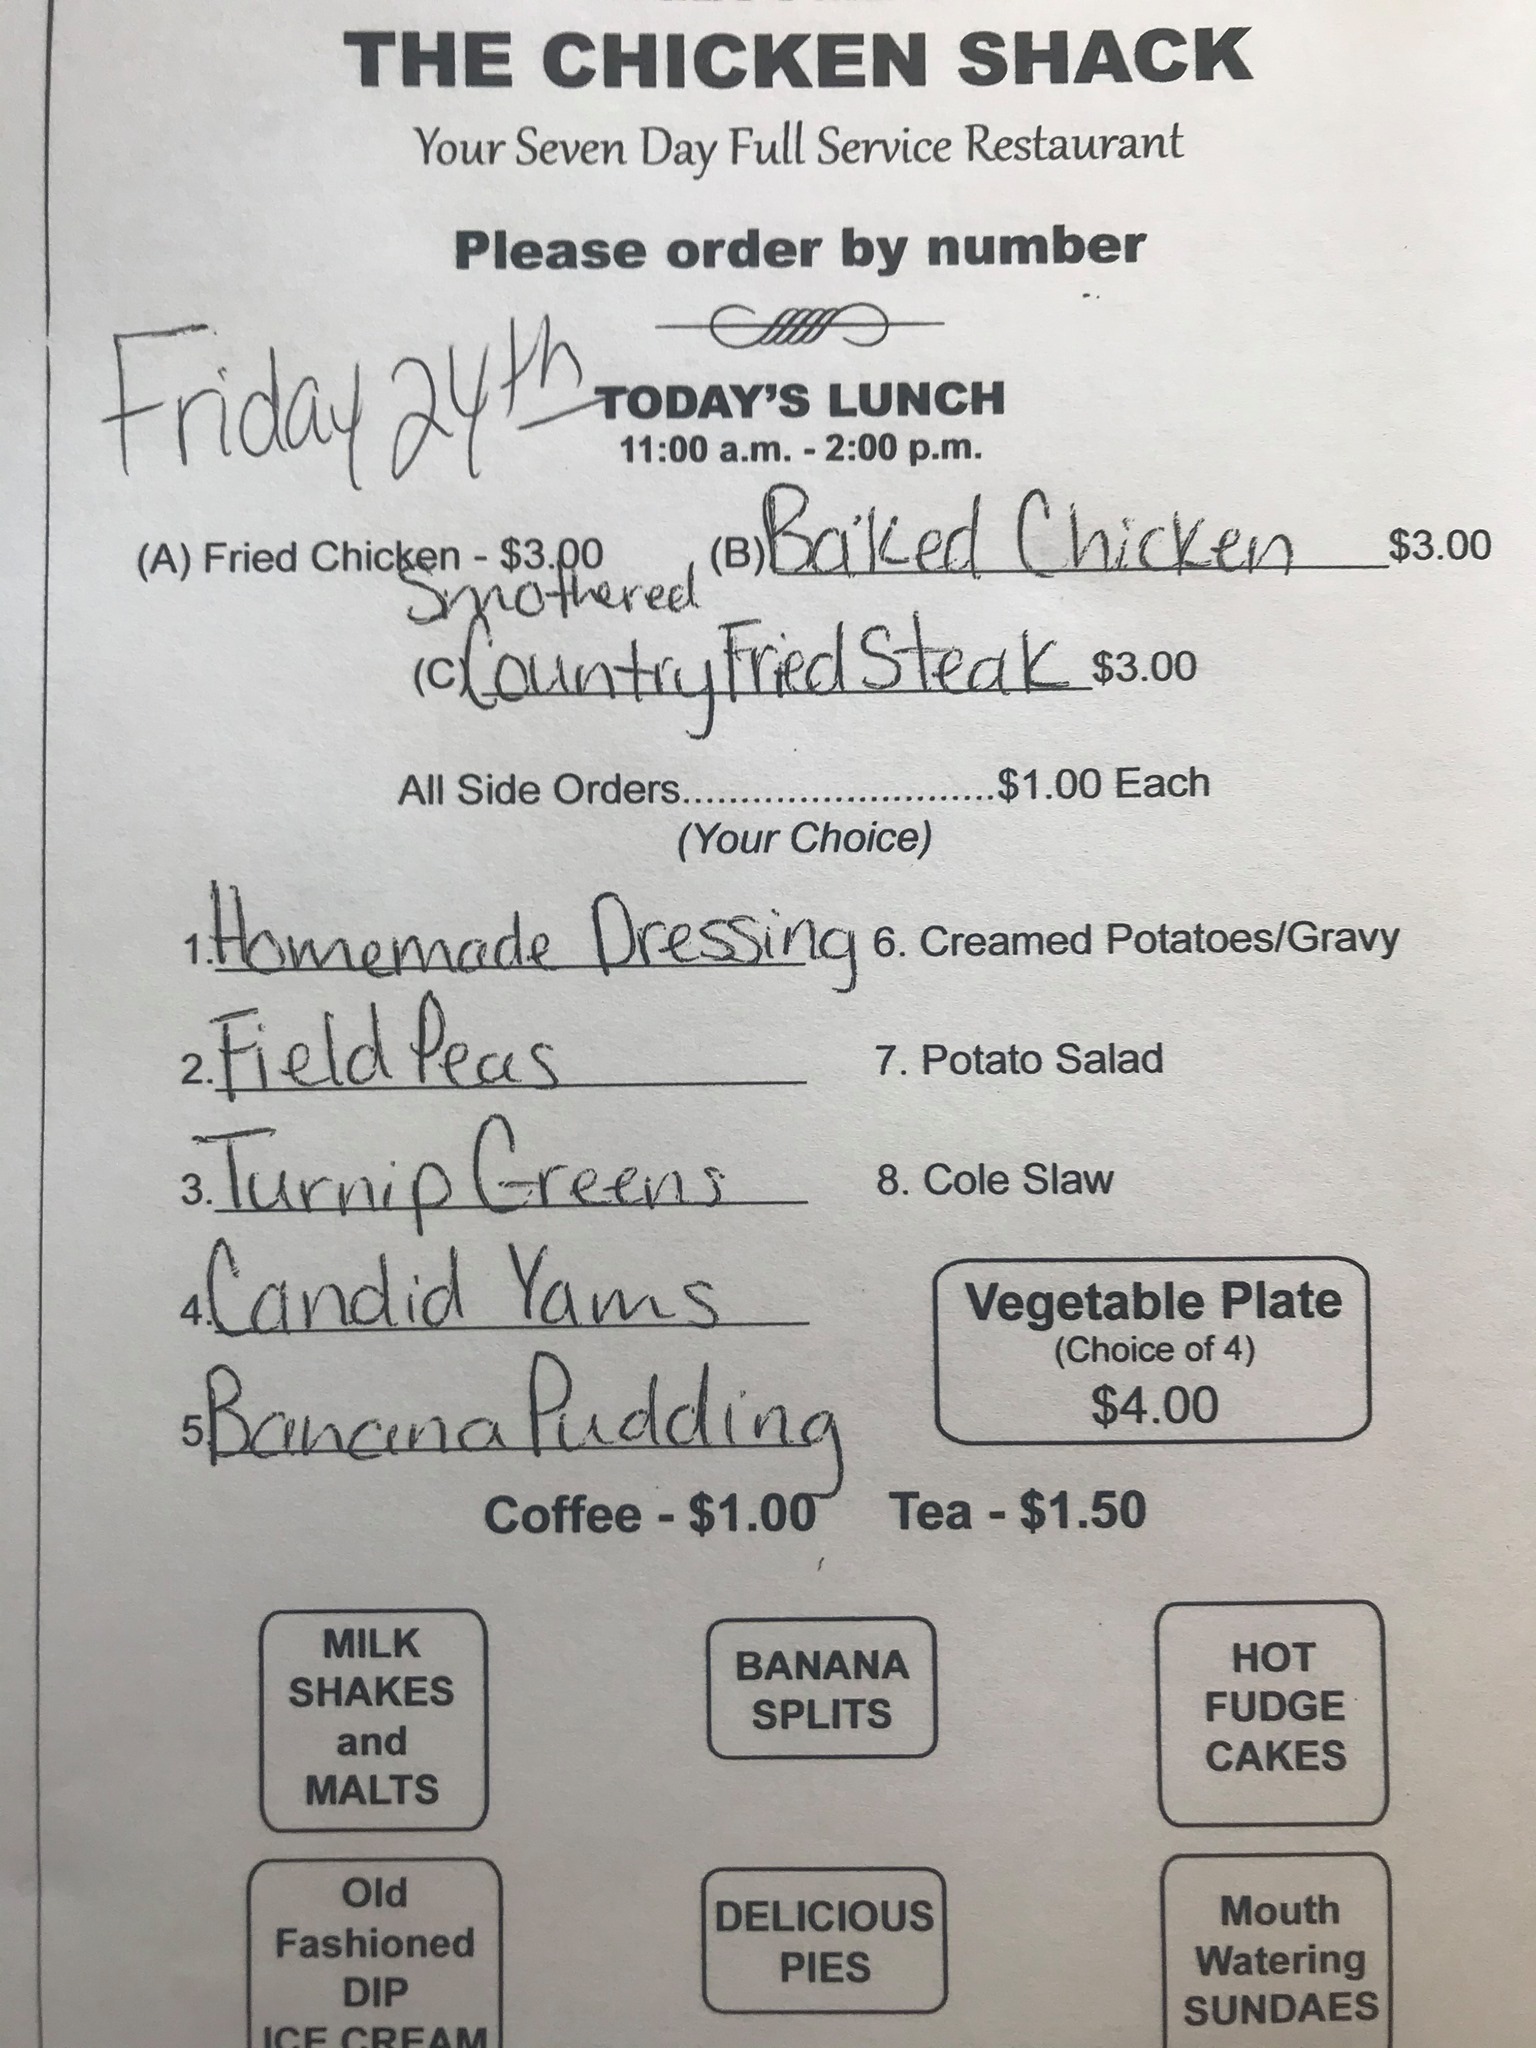 THE CHICKEN SHACK
Your Seven Day Full Service Restaurant
Please order by number
Friday 24th
TODAY'S LUNCH
11:00 a.m. - 2:00 p.m.
(A) Fried Chicken - $3.00 (B) Baked Chicken $3.00
Smothered
(C) Country Fried Steak $3.00
All Side Orders..........................$1.00 Each
(Your Choice)
1. Homemade Dressing 6. Creamed Potatoes/Gravy
2. Field Peas 7. Potato Salad
3. Turnip Greens 8. Cole Slaw
4. Candid Yams
Vegetable Plate
(Choice of 4)
$4.00
5. Banana Pudding
Coffee - $1.00 Tea - $1.50
MILK
SHAKES
and
MALTS
BANANA
SPLITS
HOT
FUDGE
CAKES
Old
Fashioned
DIP
ICE CREAM
DELICIOUS
PIES
Mouth
Watering
SUNDAES